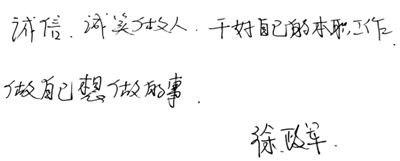 诚信、诚实做人、干好自己的本职工作
做自己想做的事.
徐政军.